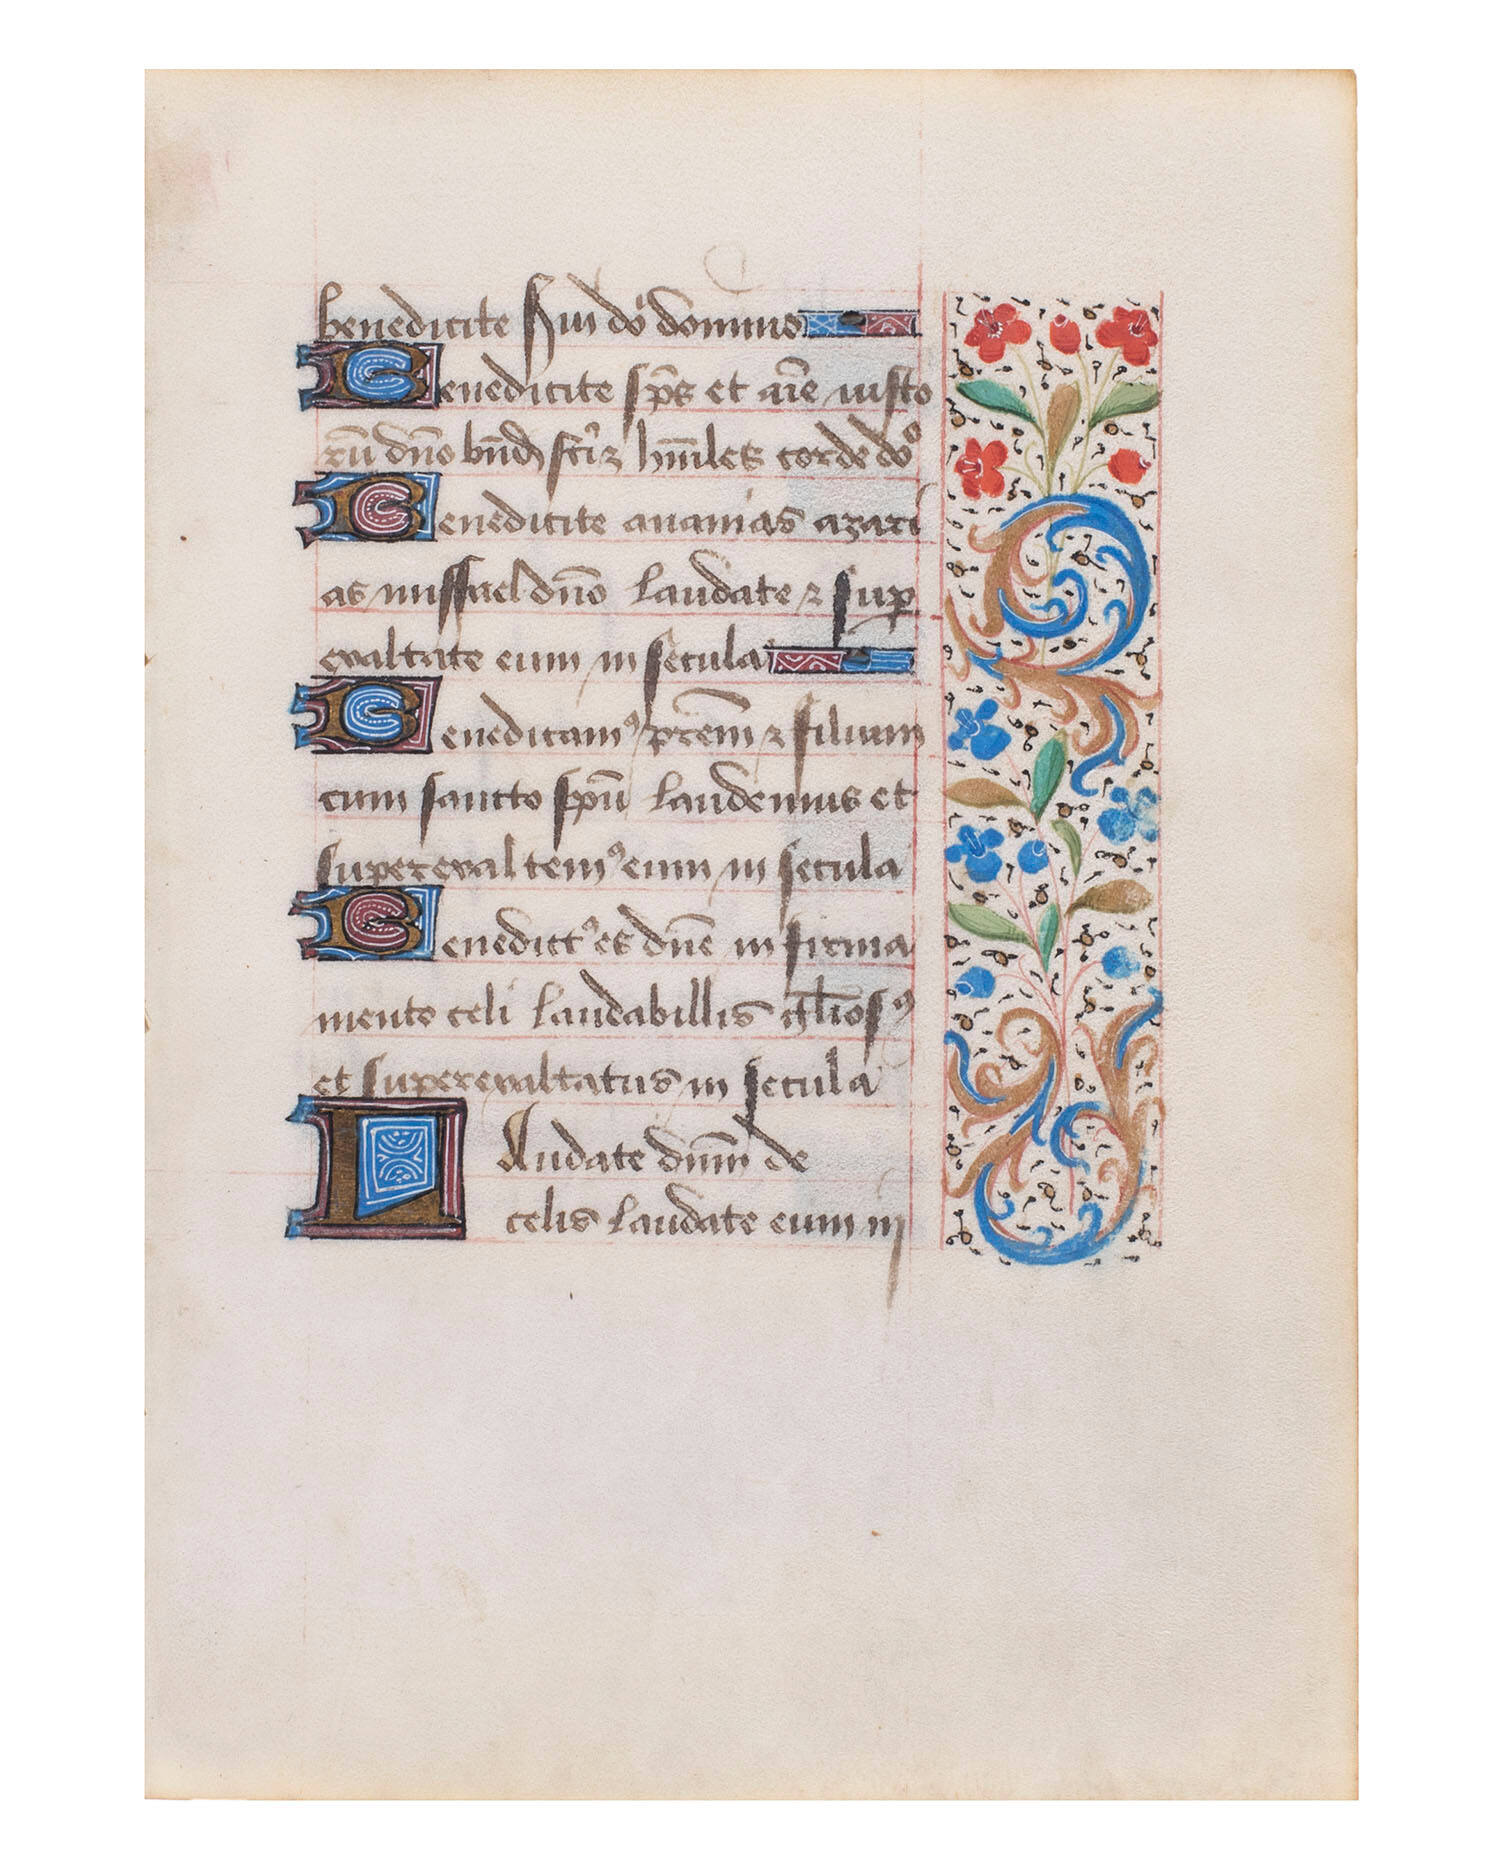 benedicite Sui dō domino
Benedicite sp̄s et aīe iusto
rū dn̄o bn̄d sc̄i ꝛ hūiles corde dn̄o
Benedicite ananias azari
as missael dn̄o laudate ꝛ sup
exaltate eum in secula
Benedicamꝰ pr̄em ꝛ filium
cum sancto sp̄u laudemus et
superexaltemꝰ eum in secula
Benedictꝰ es dn̄e in firma
mento celi laudabillis ꝛ gl̄iosꝰ
et superexaltatus in secula
LAudate dn̄m de
celis laudate eum in